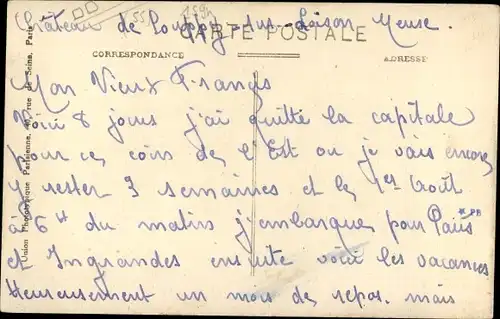 Château de Louppy-sur-Loison Meuse.
CARTE POSTALE
CORRESPONDANCE
ADRESSE
Mon Vieux Francis
Voici 8 jours j'ai quitté la capitale
Pour ces coins de l'Est ou je vais encore
y rester 3 semaines et le 1er Août
à 6H du matin j'embarque pour Paris
et Ingrandes ensuite voici les vacances
Heureusement un mois de repos. mais
Union Phototypique Parisienne, rue de Seine, Paris